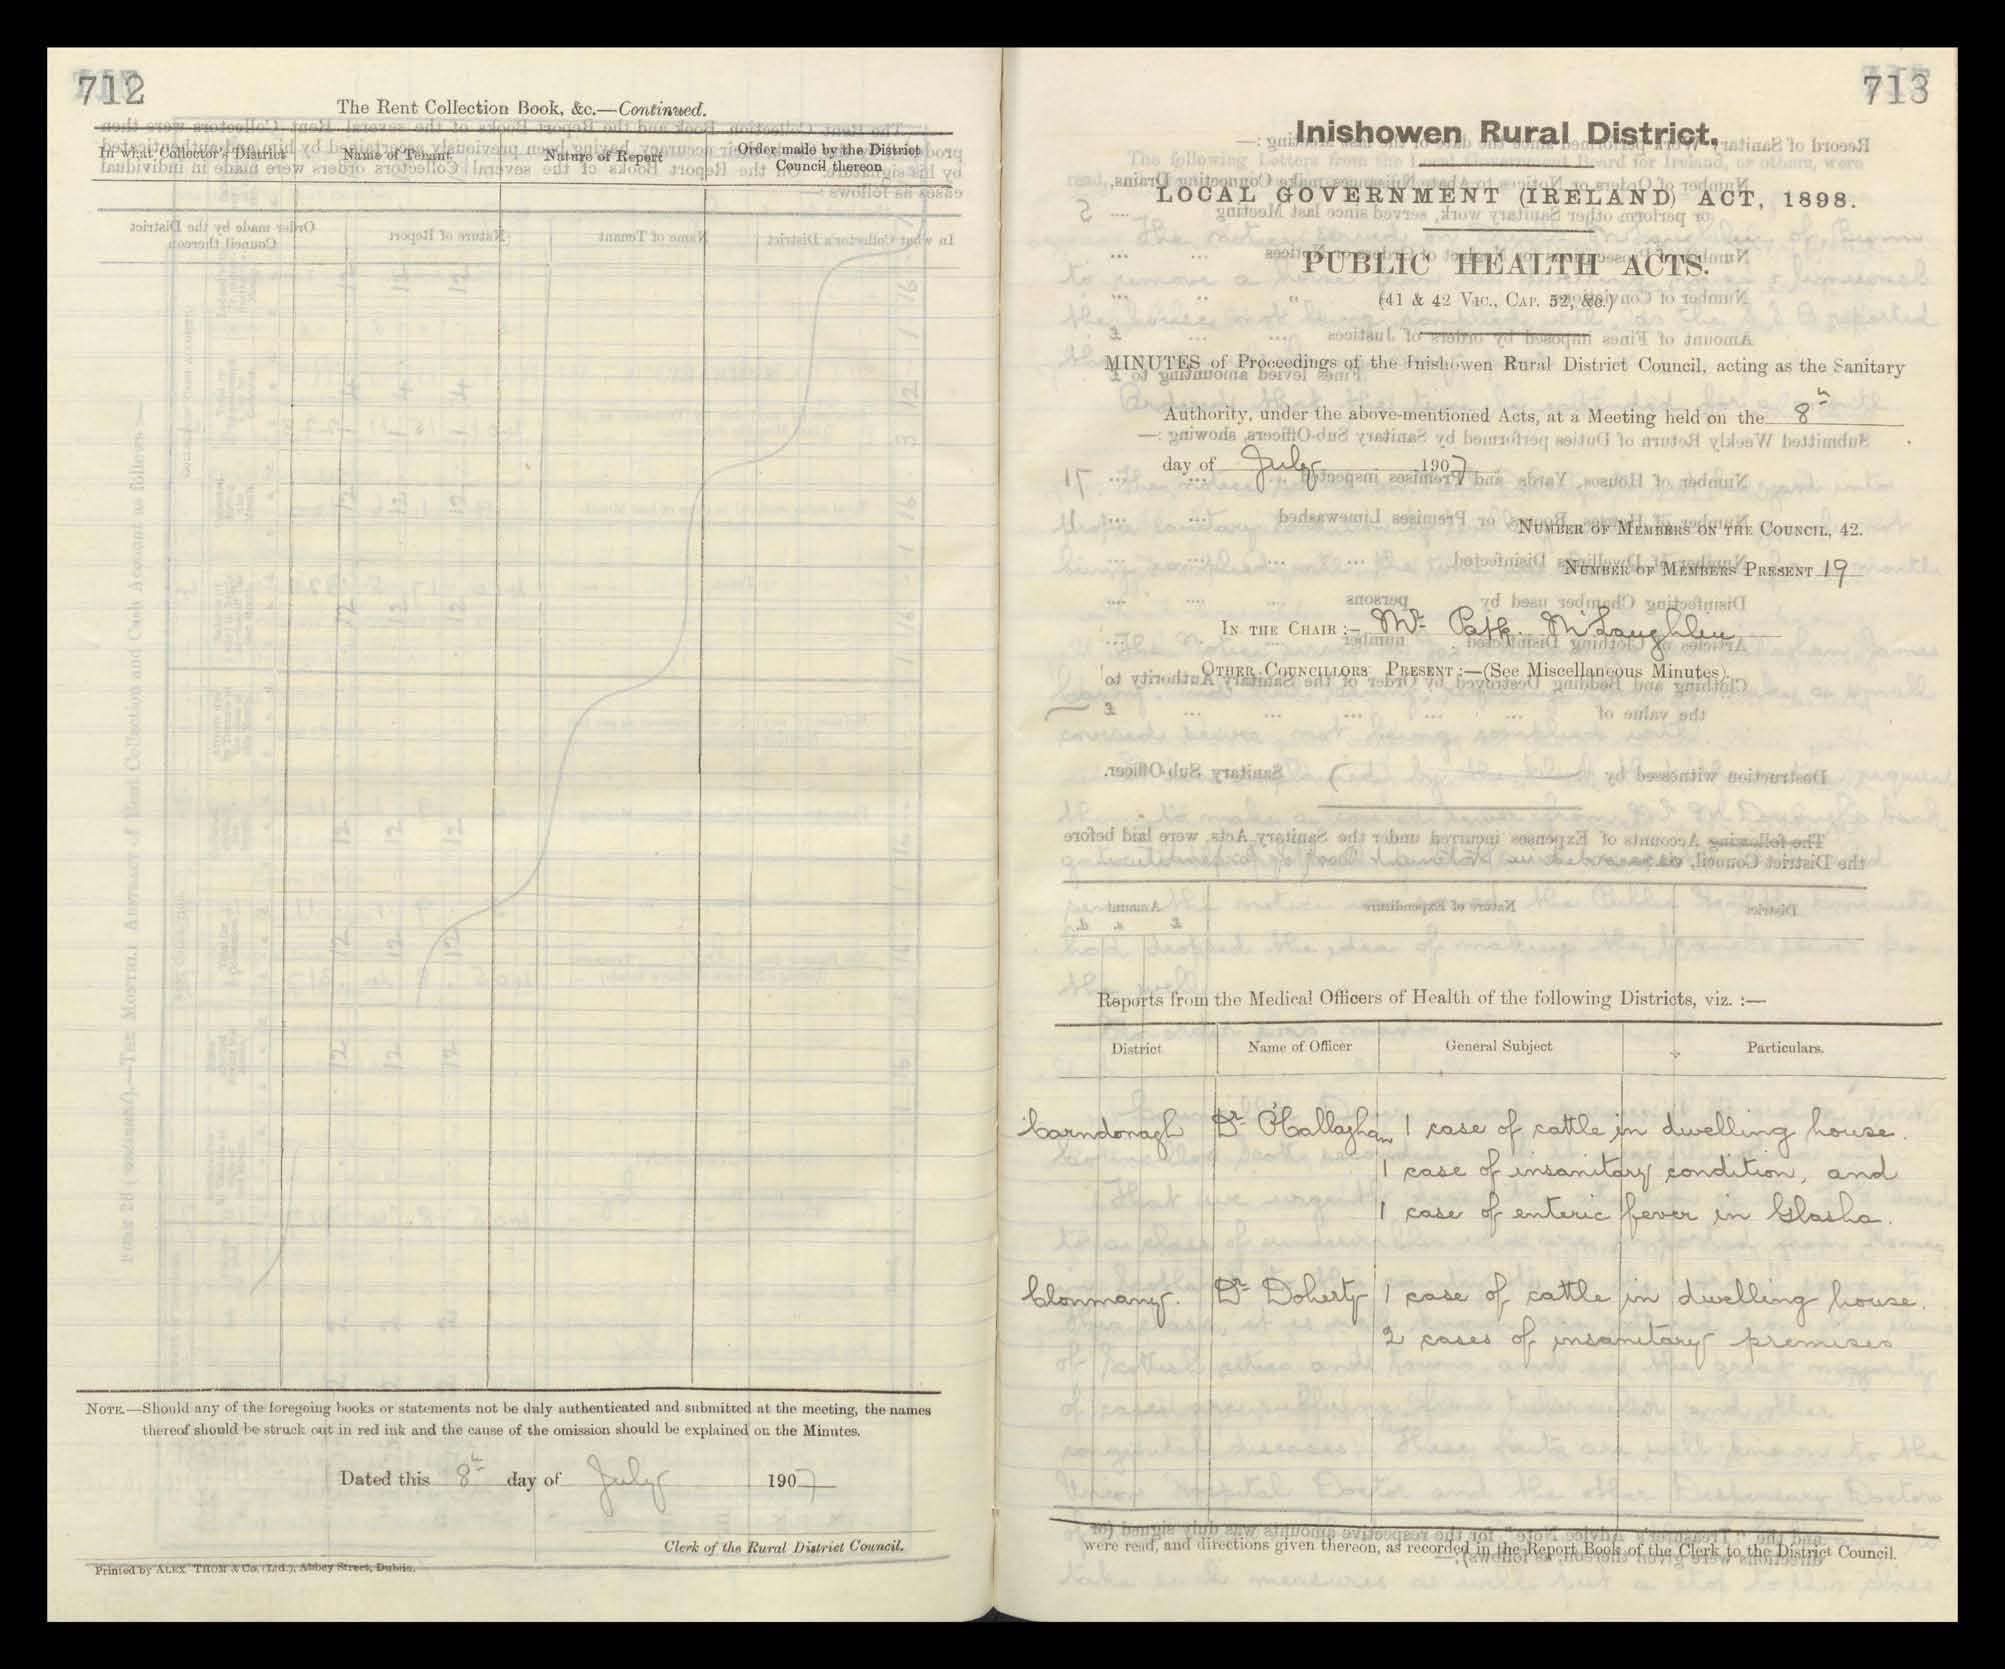 712
The Rent Collection Book, &c.—Continued.
In what Collector's District
Name of Tenant
Nature of Report
Order made by the District
Council thereon
NOTE.—Should any of the foregoing books or statements not be duly authenticated and submitted at the meeting, the names
thereof should be struck out in red ink and the cause of the omission should be explained on the Minutes.
Dated this 8th day of July 1907
Clerk of the Rural District Council.
Printed by ALEX. THOM & Co. (Ltd.), Abbey Street, Dublin.
713
Inishowen Rural District.
LOCAL GOVERNMENT (IRELAND) ACT, 1898.
PUBLIC HEALTH ACTS.
(41 & 42 VIC., CAP. 52, &c.)
MINUTES of Proceedings of the Inishowen Rural District Council, acting as the Sanitary
Authority, under the above-mentioned Acts, at a Meeting held on the 8th
day of July 1907
NUMBER OF MEMBERS ON THE COUNCIL, 42.
NUMBER OF MEMBERS PRESENT 19
IN THE CHAIR :— Mr. Patk. McLaughlin
OTHER COUNCILLORS PRESENT :—(See Miscellaneous Minutes).
Reports from the Medical Officers of Health of the following Districts, viz. :—
District
Name of Officer
General Subject
Particulars.
Carndonagh Dr O'Callaghan 1 case of cattle in dwelling house.
1 case of insanitary condition, and
1 case of enteric fever in Glasha.
Clonmany. Dr Doherty 1 case of cattle in dwelling house.
2 cases of insanitary premises
were read, and directions given thereon, as recorded in the Report Book of the Clerk to the District Council.